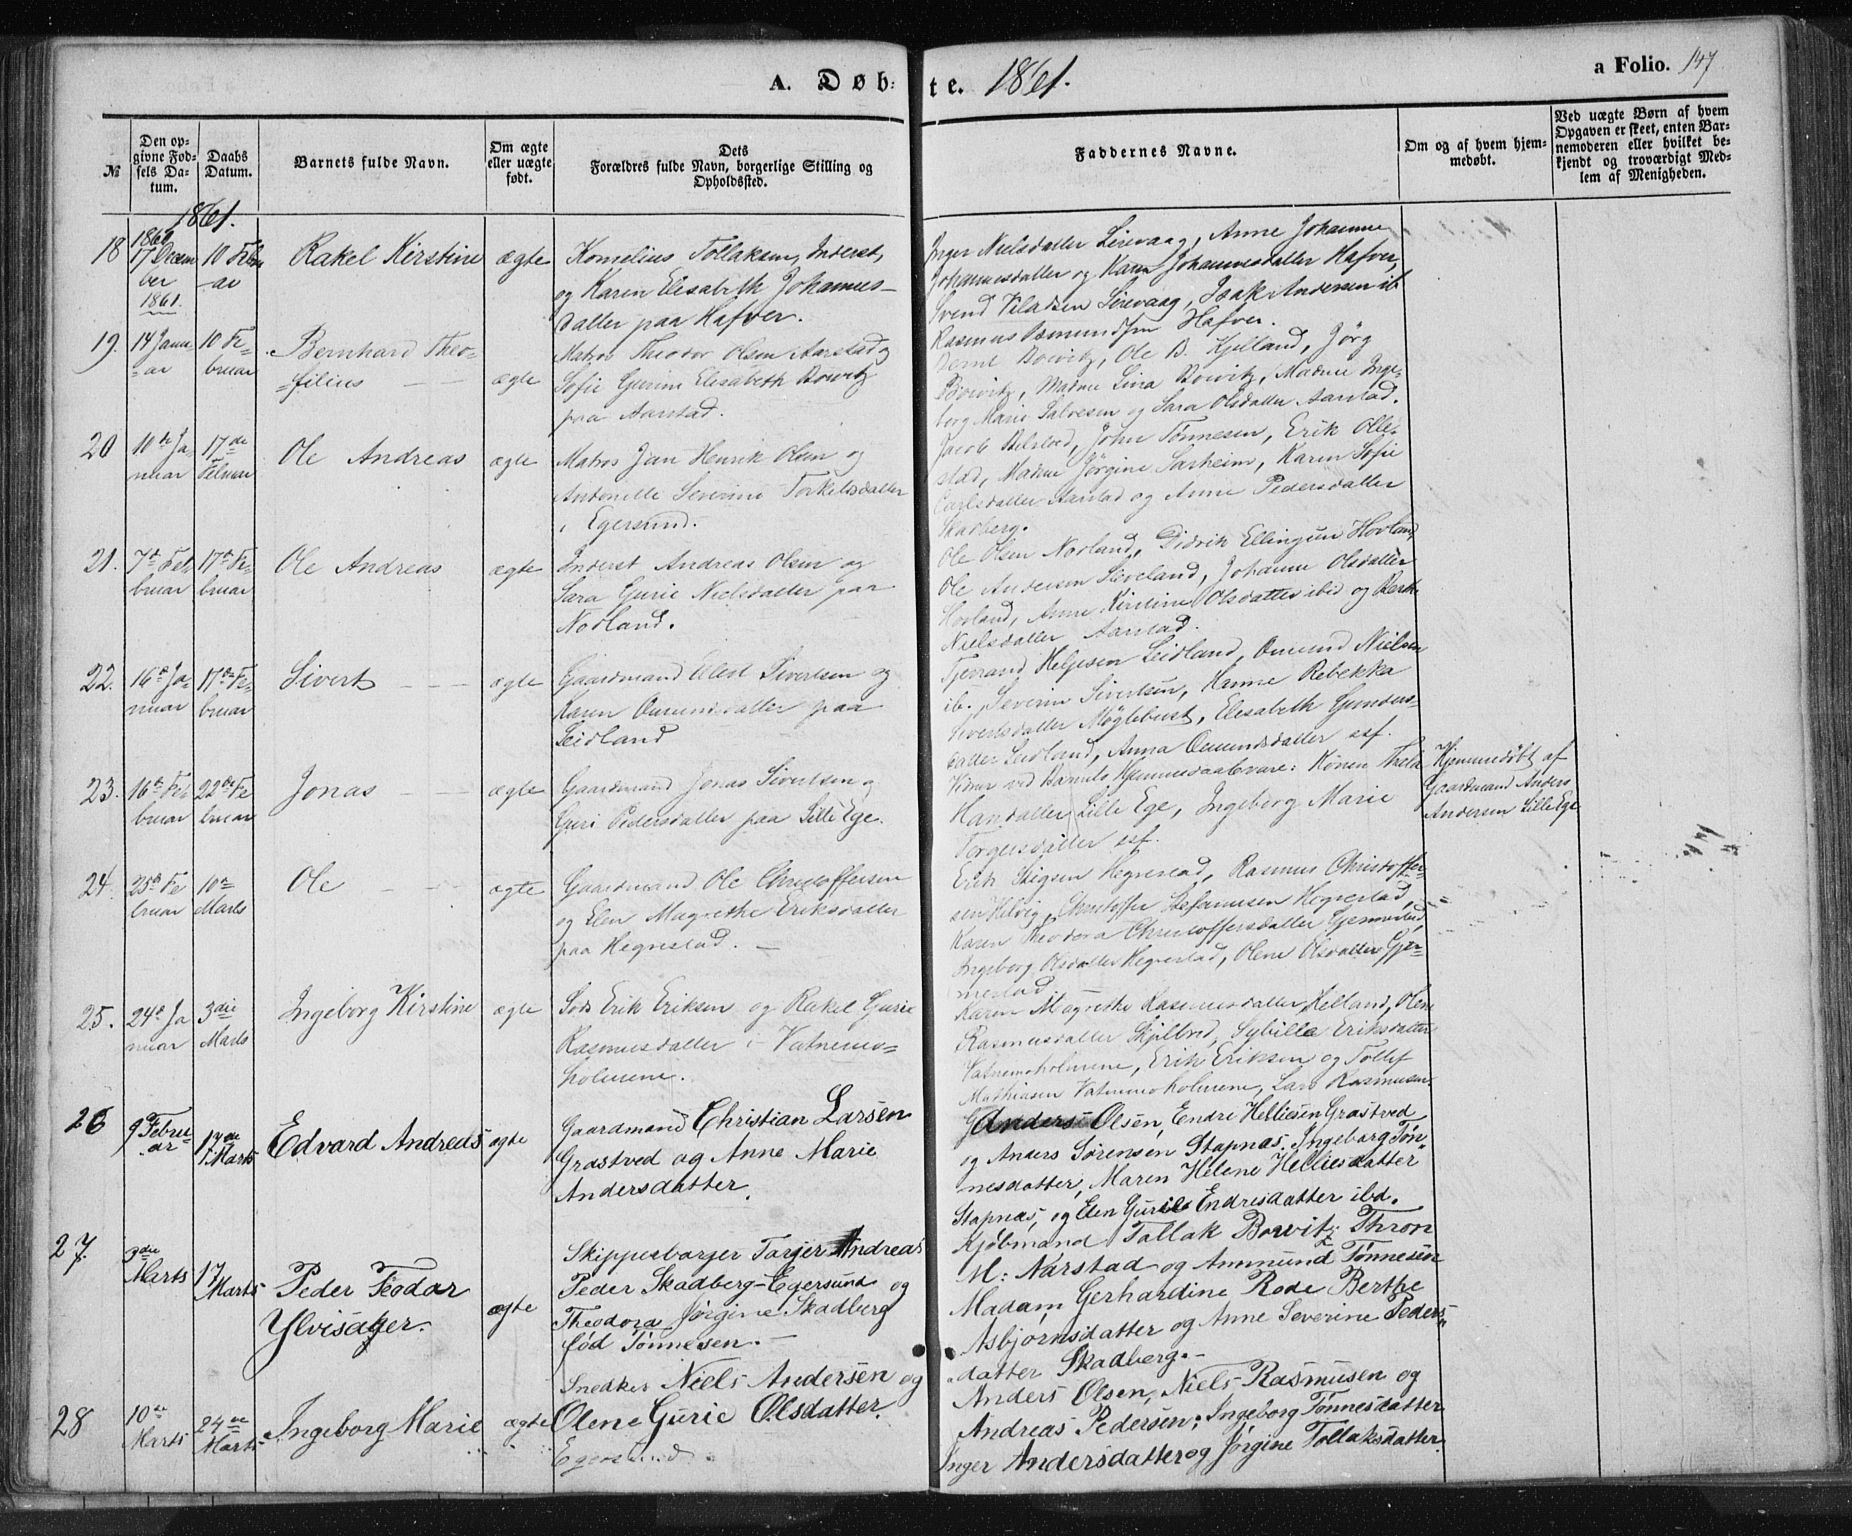 A. Døb-
te. 1861.
a Folio. 147
№
Den op-
givne Fød-
sels Da-
tum.
Daabs
Datum.
Barnets fulde Navn.
Om ægte
eller uægte
født.
Dets
Forældres fulde Navn, borgerlige Stilling og
Opholdssted.
Faddernes Navne.
Om og af hvem hjem-
medøbt.
Ved uægte Børn af hvem
Opgaven er skeet, enten Bar-
nemoderen eller hvilket be-
kjendt og troværdigt Med-
lem af Menigheden.
1861.
18
1860
17 Decem
ber
1861.
10 Febru
ar
Rakel Kirstine
ægte
Kornelius Tollaksen, Inderst,
og Karen Elisabeth Johannes-
datter paa Hafver.
Inger Nielsdatter Sirevaag, Anne Johanne
Johannesdatter og Karen Johannesdatter Hafver,
Svend Viladsen Sirevaag, Isak Andersen ib
Rasmus Osmundsen Hafver.
19.
14 Janu
ar
10 Fe-
bruar
Bernhard Theo-
filius
ægte
Matros Theodor Olsen Aarstad og
Sofie Gurine Elisabeth Bowitz
paa Aarstad.
Bernt Bowitz, Ole B. Kjelland, Jörg
Bowitz, Madme Lina Bowitz, Madme Inge-
borg Marie Salvesen og Sara Olsdatter Aarstad.
20
10de Ja
nuar
17de
Februar
Ole Andreas
ægte
Matros Jan Henrik Olsen og
Antonette Severine Torkelsdatter
i Egersund.
Jacob , John Tönnesen, Erik Olle-
stad, Madme Jørgine Saxheim, Karen Sofie
Carlsdatter Aarstad og Anne Pedersdatter
Skadberg.
21.
7de Fe
bruar
17de Fe-
bruar
Ole Andreas
ægte
Inderst Andreas Olsen og
Sara Gurie Nielsdatter paa
Nodland.
Ole Olsen Nodland, Didrik Ellingsen Hovland,
Ole Andersen Sleveland, Johanne Olsdatter
Hovland, Anne Kirstine Olsdatter ibid og Berthe
Nielsdatter Aarstad.
22.
16de Ja-
nuar
17de Fe-
bruar
Sivert
ægte
Gaardmand Sivertsen og
Karen Omundsdatter paa
Leidland
Tjerand Helgesen Leidland, Omund Nielsen
ib. Severin Sivertsen, Hanne Rebekka
Sivertsdatter Møglebust, Elisabeth Gunders-
datter Leidland, Anna Omundsdatter esf.
23.
16de Fe
bruar
22de Fe
bruar
Jonas
ægte
Gaardmand Jonas Sivertsen og
Guri Pedersdatter paa Lille Ege.
Vidner ved Barnets Hjemmedaab vare: Konen Thea
Hansdatter Lille Ege, Ingeborg Marie
Torgersdatter esf.
Hjemmedøbt af
Gaardmand Anders
Andersen Lille Ege
24.
25de Fe
bruar
10de
Marts
Ole
ægte
Gaardmand Ole Christoffersen
og Elen Magrethe Eriksdatter
paa Hegrestad.
Erik Stigsen Hegrestad, Rasmus Christoffer-
sen Helvig, Christoffer Stefanusen Hegrestad,
Karen Theodora Christoffersdatter Gjermestad,
Ingeborg Olsdatter Hegrestad, Olene Olsdatter Gjer-
mestad
25.
24de Ja
nuar
3die
Marts
Ingeborg Kirstine
ægte
Lods Erik Eriksen og Rakel Gurie
Rasmusdatter i Vatnemo-
holmene.
Karen Magrethe Rasmusdatter Helland, Olene
Rasmusdatter Skjelbred, Sybilla Eriksdatter
Vatnemoholmene, Erik Eriksen og Tollef
Mathiasen Vatnemoholmene, Lars Rasmusen.
26
9 Febru-
ar
17de
Marts
Edvard Andreas
ægte
Gaardmand Christian Larsen
Grøstved og Anne Marie
Andersdatter.
Anders Olsen, Endre Helliesen Grøstved
og Anders Sørensen Stapnæs, Ingeborg Tøn-
nesdatter, Maren Helene Helliesdatter
Stapnæs, og Elen Gurie Endresdatter ibd.
27.
3die
Marts
17
Marts
Peder Feodor
Ylvisager.
ægte
Skippusborger Torjer Andreas
Peder Skadberg-Egersund og
Theodora Jørgine Skadberg
fød Tønnesen.
Kjøbmand Tallak Bowitz Thron
M: Nárstad og Ammund Tønnesen
Madam Gerhardine Rode Berthe
Asbjørnsdatter og Anne Severine Peders-
datter Skadberg.
28
10de
Marts
24de
Marts
Ingeborg Marie
ægte
Snedker Niels Andersen og
Olene Gurie Olsdatter.
Egersund.
Anders Olsen, Niels Rasmusen og
Andreas Pedersen; Ingeborg Tønnesdatter
Inger Andersdatter og Jørgine Tollaksdatter.